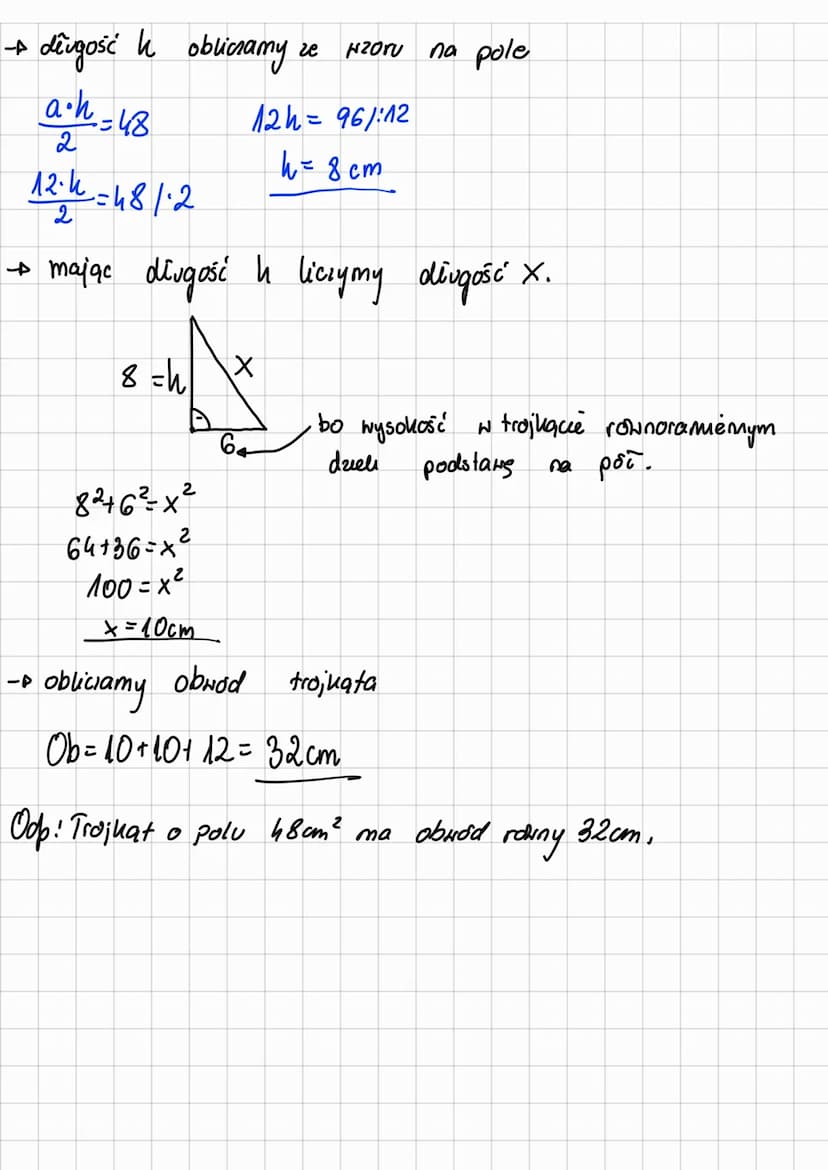 → długość h obliczamy ze wzoru na pole
a·h/2 = 48
12h = 96 /:12
12·h/2 = 48 /·2
h = 8 cm
→ mając długość h liczymy długość x.
8 = h
x
6
bo wysokość w trojkącie równoramiennym
dzieli podstawę na pół.
8²+6²=x²
64+36=x²
100=x²
x=10cm
→ obliczamy obwód trojkąta
Ob=10+10+12= 32cm
Odp! Trojkąt o polu 48cm² ma obwód równy 32cm.